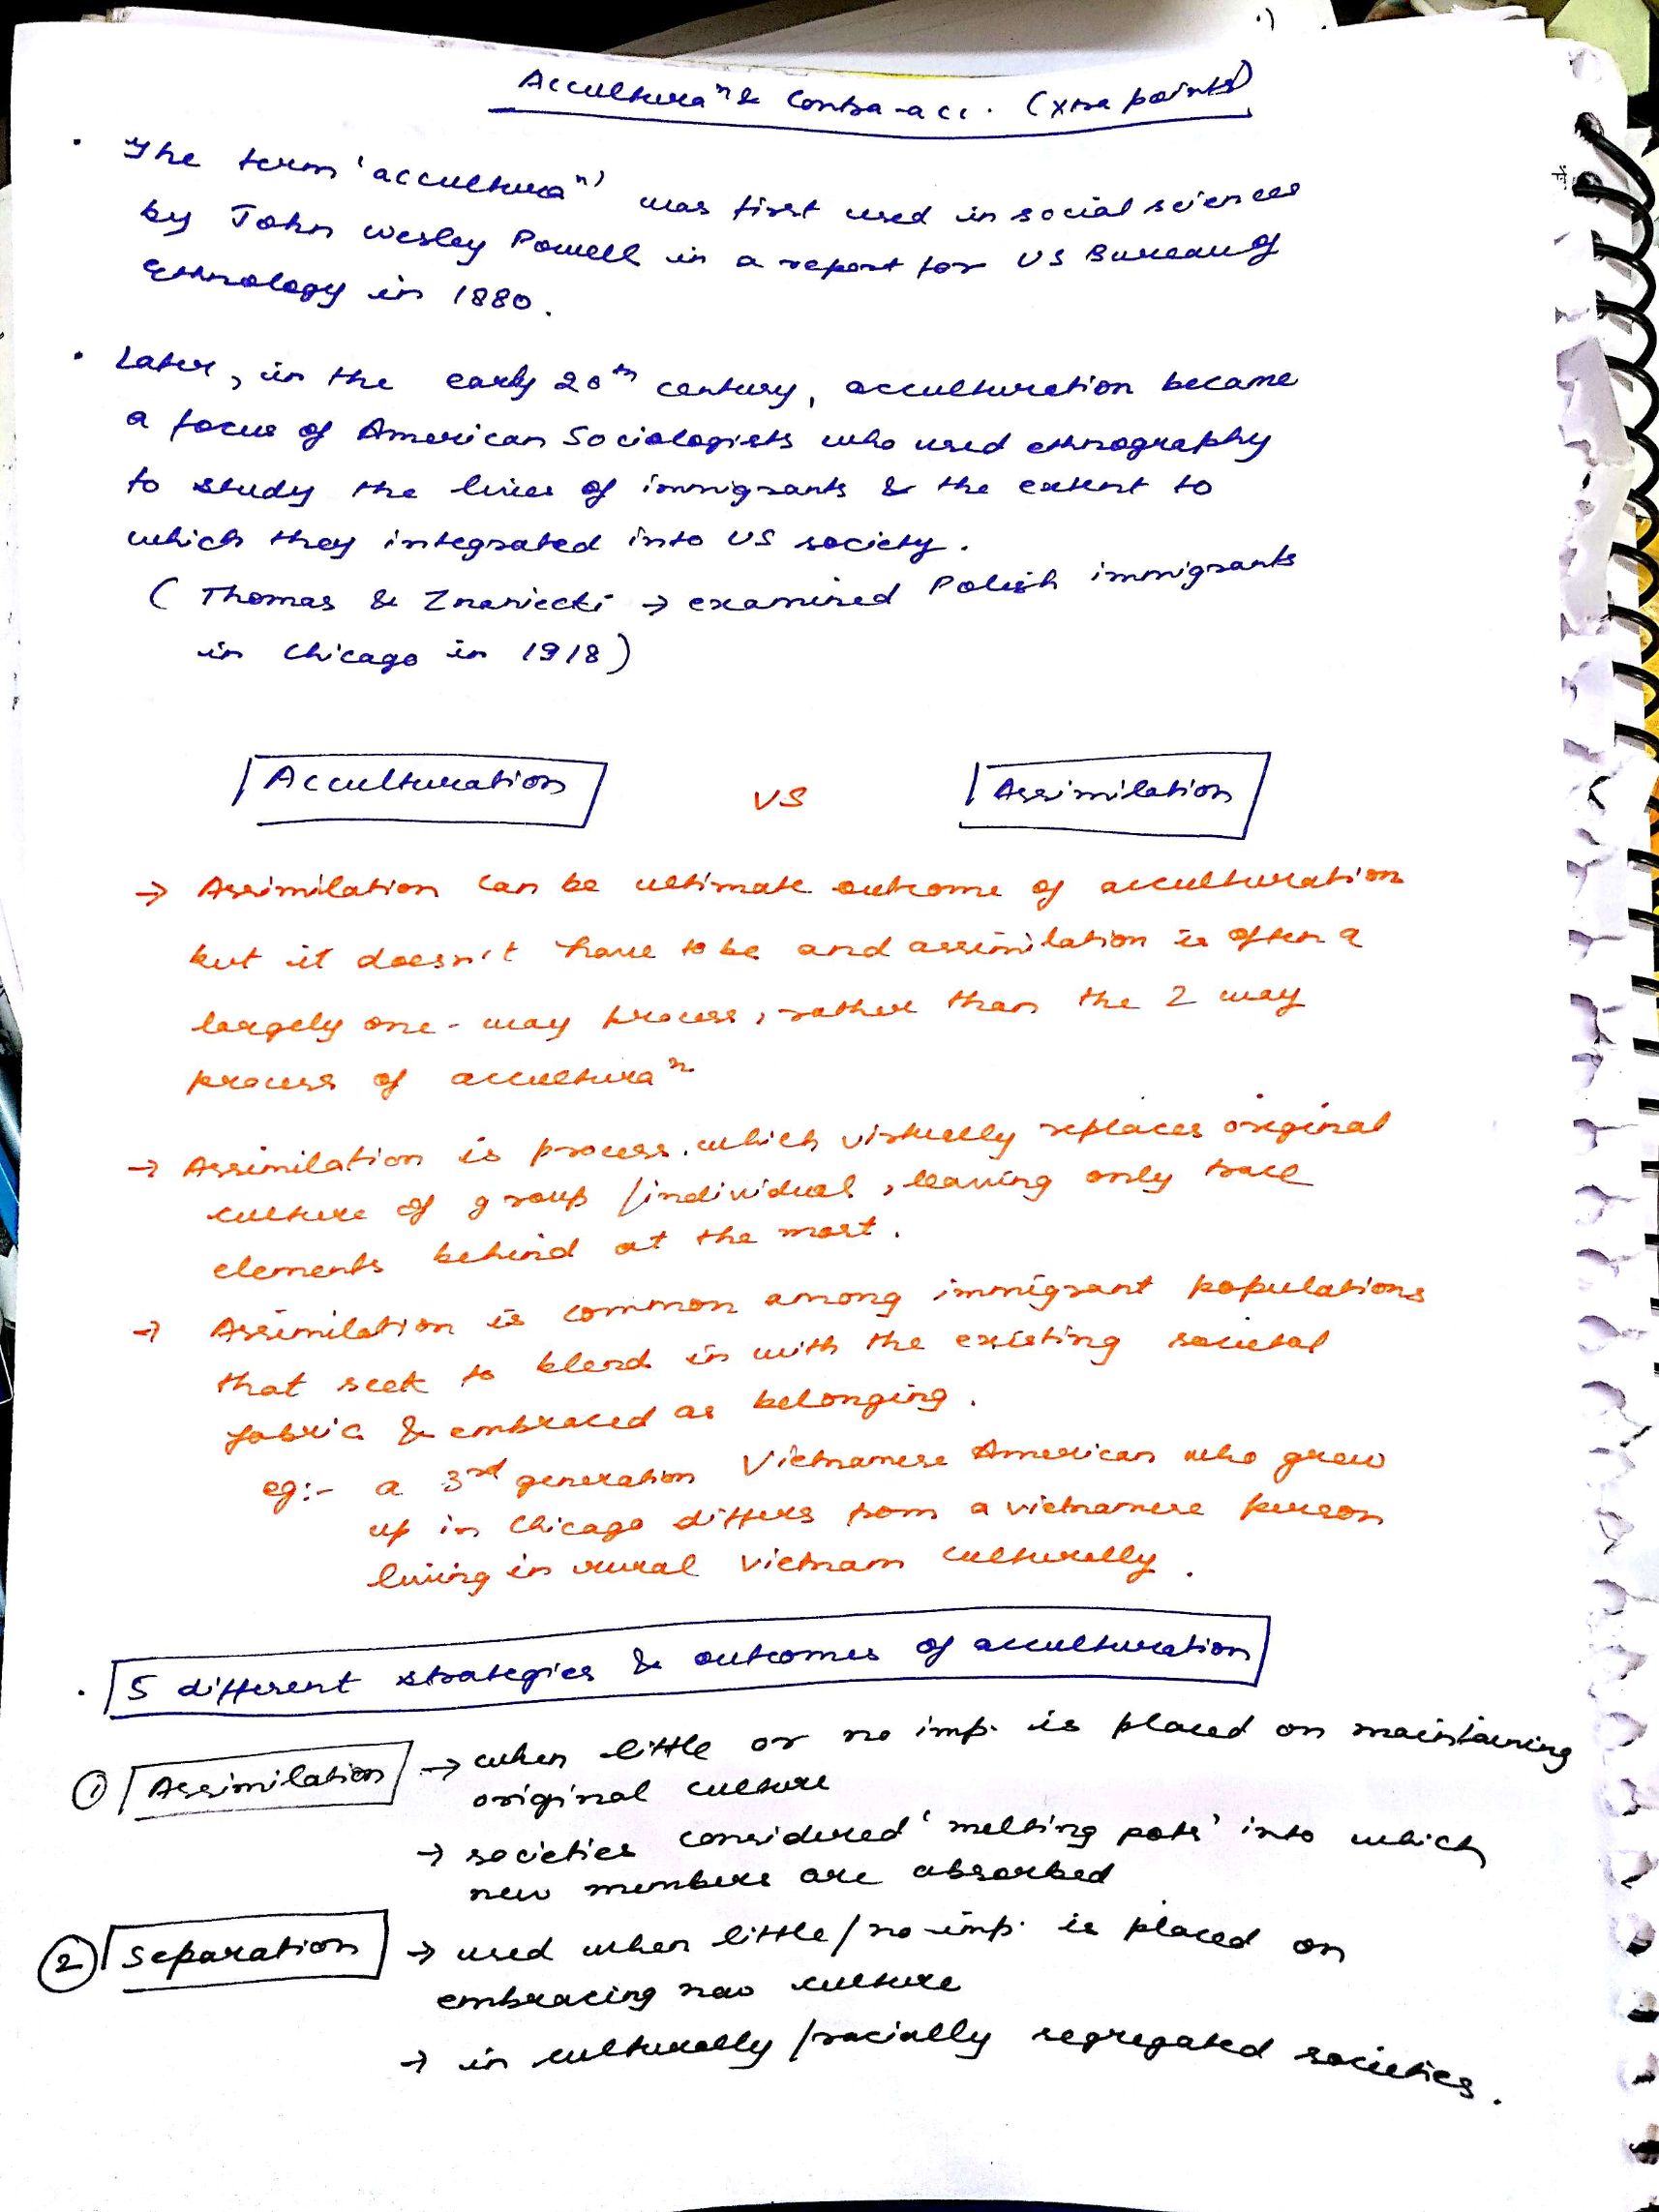 Accultura^n & Contra-acc. (Xtra points)
• The term 'accultura^n' was first used in social sciences
by John Wesley Powell in a report for US Bureau of
Ethnology in 1880.
• Later, in the early 20th century, acculturation became
a focus of American Sociologists who used ethnography
to study the lives of immigrants & the extent to
which they integrated into US society.
(Thomas & Znaniecki → examined Polish immigrants
in Chicago in 1918)
Acculturation VS Assimilation
→ Assimilation can be ultimate outcome of acculturation
but it doesn't have to be and assimilation is often a
largely one-way process, rather than the 2 way
process of accultura^n
→ Assimilation is process which virtually replaces original
culture of group/individual, leaving only trace
elements behind at the most.
→ Assimilation is common among immigrant populations
that seek to blend in with the existing societal
fabric & embraced as belonging.
eg:- a 3rd generation Vietnamese American who grew
up in Chicago differs from a vietnamese person
living in rural Vietnam culturally.
• 5 different strategies & outcomes of acculturation
① Assimilation → when little or no imp. is placed on maintaining
original culture
→ societies considered 'melting pots' into which
new members are absorbed
② Separation → used when little/no imp. is placed on
embracing new culture
→ in culturally/racially segregated societies.